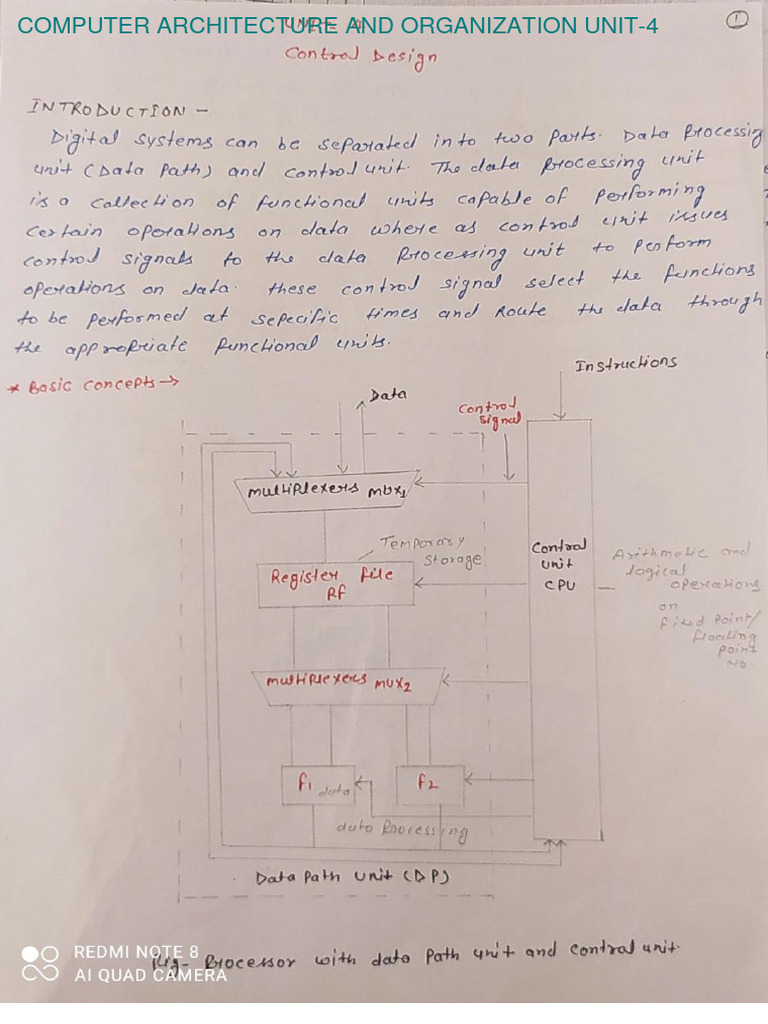 COMPUTER ARCHITECTURE AND ORGANIZATION UNIT-4
1
Control Design
INTRODUCTION -
Digital systems can be separated into two parts. Data Processing
unit (Data Path) and control unit. The data processing unit
is a collection of functional units capable of performing
certain operations on data where as control unit issues
control signals to the data processing unit to perform
operations on data. these control signal select the functions
to be performed at sepecific times and Route the data through
the appropriate functional units.
Instructions
* Basic concepts →
Data
control
signal
multiplexers mux1
Temporary
Storage
Register file
RF
Control
unit
CPU
Arithmetic and
logical
operations
on
fixed point/
floating
point
No
multiplexers mux2
f1
data
f2
data Processing
Data Path unit (DP)
fig- Processor with data path unit and control unit.
REDMI NOTE 8
AI QUAD CAMERA